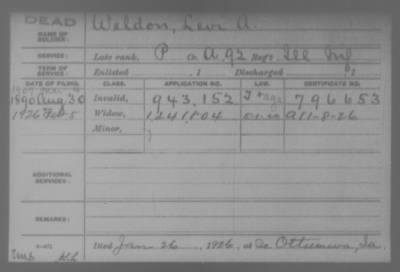 DEAD
NAME OF SOLDIER: Weldon, Levi A.
SERVICE: Late rank, P Co. A, 92 Reg't Ill Inf
TERM OF SERVICE: Enlisted , 1 Discharged , 1
DATE OF FILING. CLASS. APPLICATION NO. LAW. CERTIFICATE NO.
1890 Aug 30 Invalid, 943,152 796653
1926 Feb-5 Widow, 1241804 A11-8-26
Minor,
ADDITIONAL SERVICES:
REMARKS:
Died Jan 26, 1926, at Ottumwa, Ia.